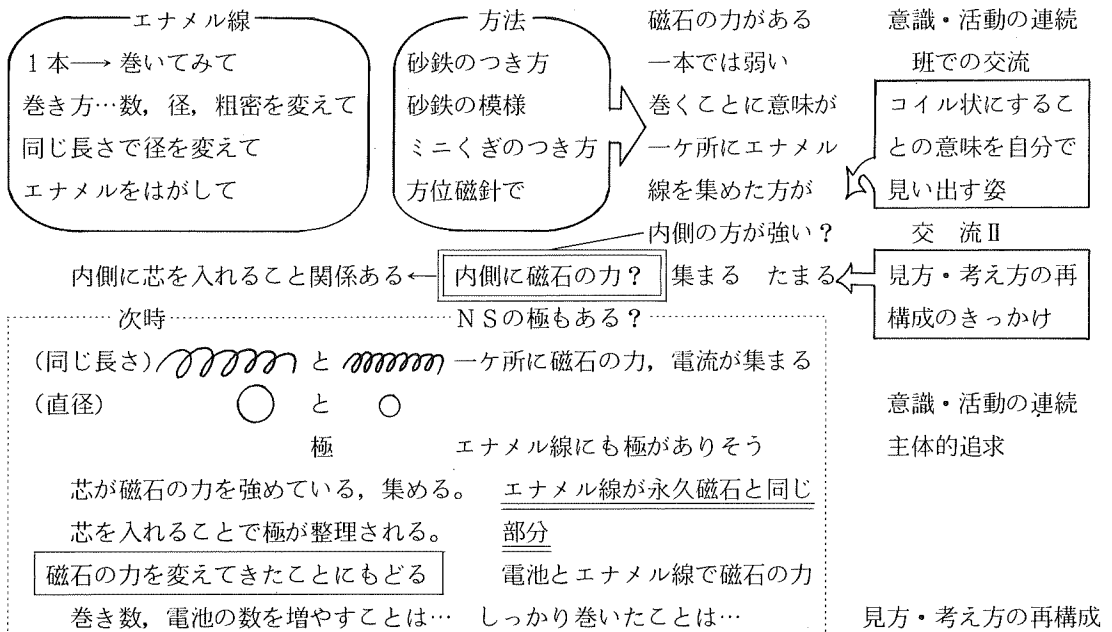 エナメル線
1本→ 巻いてみて
巻き方…数，径，粗密を変えて
同じ長さで径を変えて
エナメルをはがして
方法
砂鉄のつき方
砂鉄の模様
ミニくぎのつき方
方位磁針で
磁石の力がある
一本では弱い
巻くことに意味が
一ケ所にエナメル
線を集めた方が
内側の方が強い？
意識・活動の連続
班での交流
コイル状にするこ
との意味を自分で
見い出す姿
交 流Ⅱ
内側に芯を入れること関係ある← 内側に磁石の力？ 集まる たまる
見方・考え方の再
構成のきっかけ
次時 NSの極もある？
(同じ長さ) と 一ケ所に磁石の力，電流が集まる
(直径) ○ と ○
意識・活動の連続
極 エナメル線にも極がありそう
主体的追求
芯が磁石の力を強めている，集める。 エナメル線が永久磁石と同じ
芯を入れることで極が整理される。 部分
磁石の力を変えてきたことにもどる 電池とエナメル線で磁石の力
巻き数，電池の数を増やすことは… しっかり巻いたことは… 見方・考え方の再構成